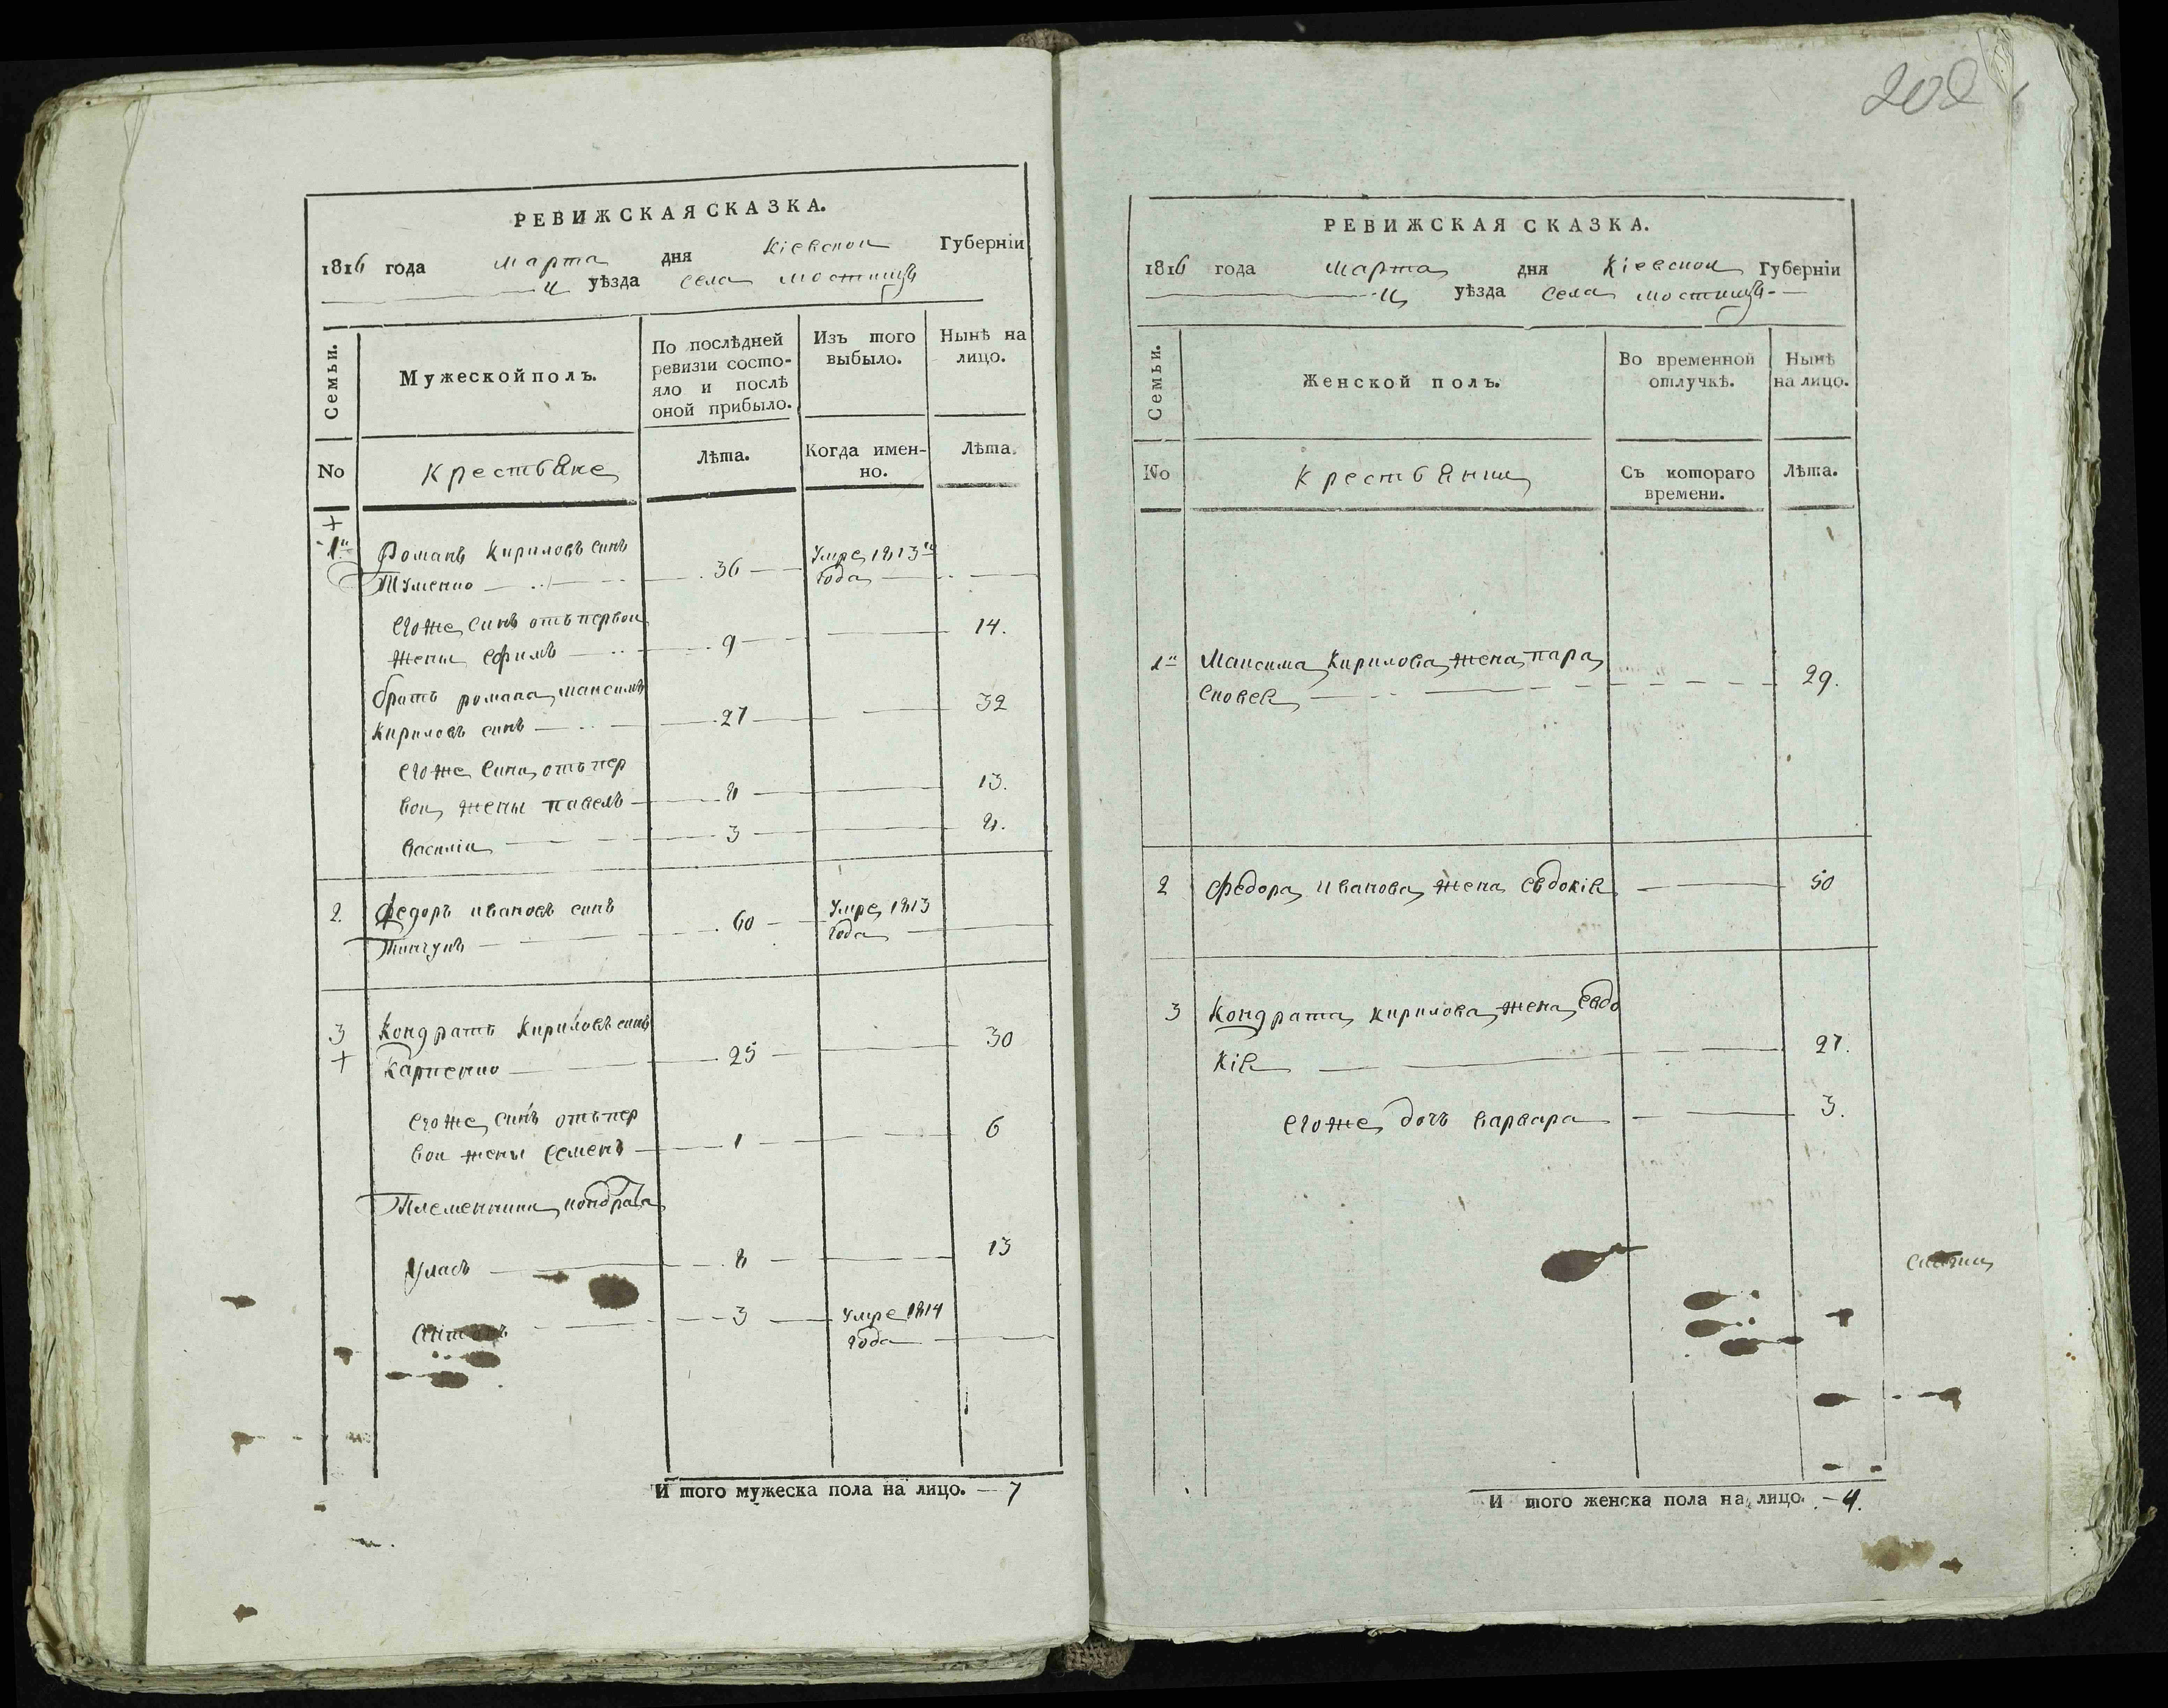 202
РЕВИЖСКАЯ СКАЗКА.
1816 года марта дня Кіевской Губерніи
й уѣзда села Мостищъ
Семьи. Мужеской полъ. По послѣдней ревизіи состояло и послѣ оной прибыло. Изъ того выбыло. Нынѣ на лицо.
No Крестьяне Лѣта. Когда именно. Лѣта.
1й Романъ Кириловъ синъ
36 Умре 1813го года
его же синъ отъ первой
жены Ефимъ 9 14.
братъ романа максимъ
Кириловъ синъ 27 32
его же сини отъ пер
вой жены павелъ 8 13.
василій 3 8.
2. Федоръ ивановъ синъ
60 Умре 1813 года
3 Кондратъ Кириловъ синъ
Карпенко 25 30
его же синъ отъ пер
вой жены семенъ 1 6
Племенники кондрата
Уласъ 8 13
3 Умре 1814 года
И того мужеска пола на лицо. — 7
РЕВИЖСКАЯ СКАЗКА.
1816 года марта дня Кіевской Губерніи
й уѣзда села мостищъ
Семьи. Женской полъ. Во временной отлучкѣ. Нынѣ на лицо.
No Крестьянки Съ котораго времени. Лѣта.
1й Максима Кирилова жена пара
сковея 29.
2 Федора иванова жена евдокія 50
3 Кондрата кирилова жена евдо
кія 27.
его же дочъ варвара 3.
И того женска пола на лицо. — 4.